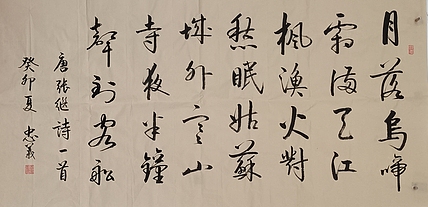 月落烏啼
霜满天江
枫漁火對
愁眠姑蘇
城外寒山
寺夜半鐘
聲到客船
唐張继詩一首
癸卯夏 忠義